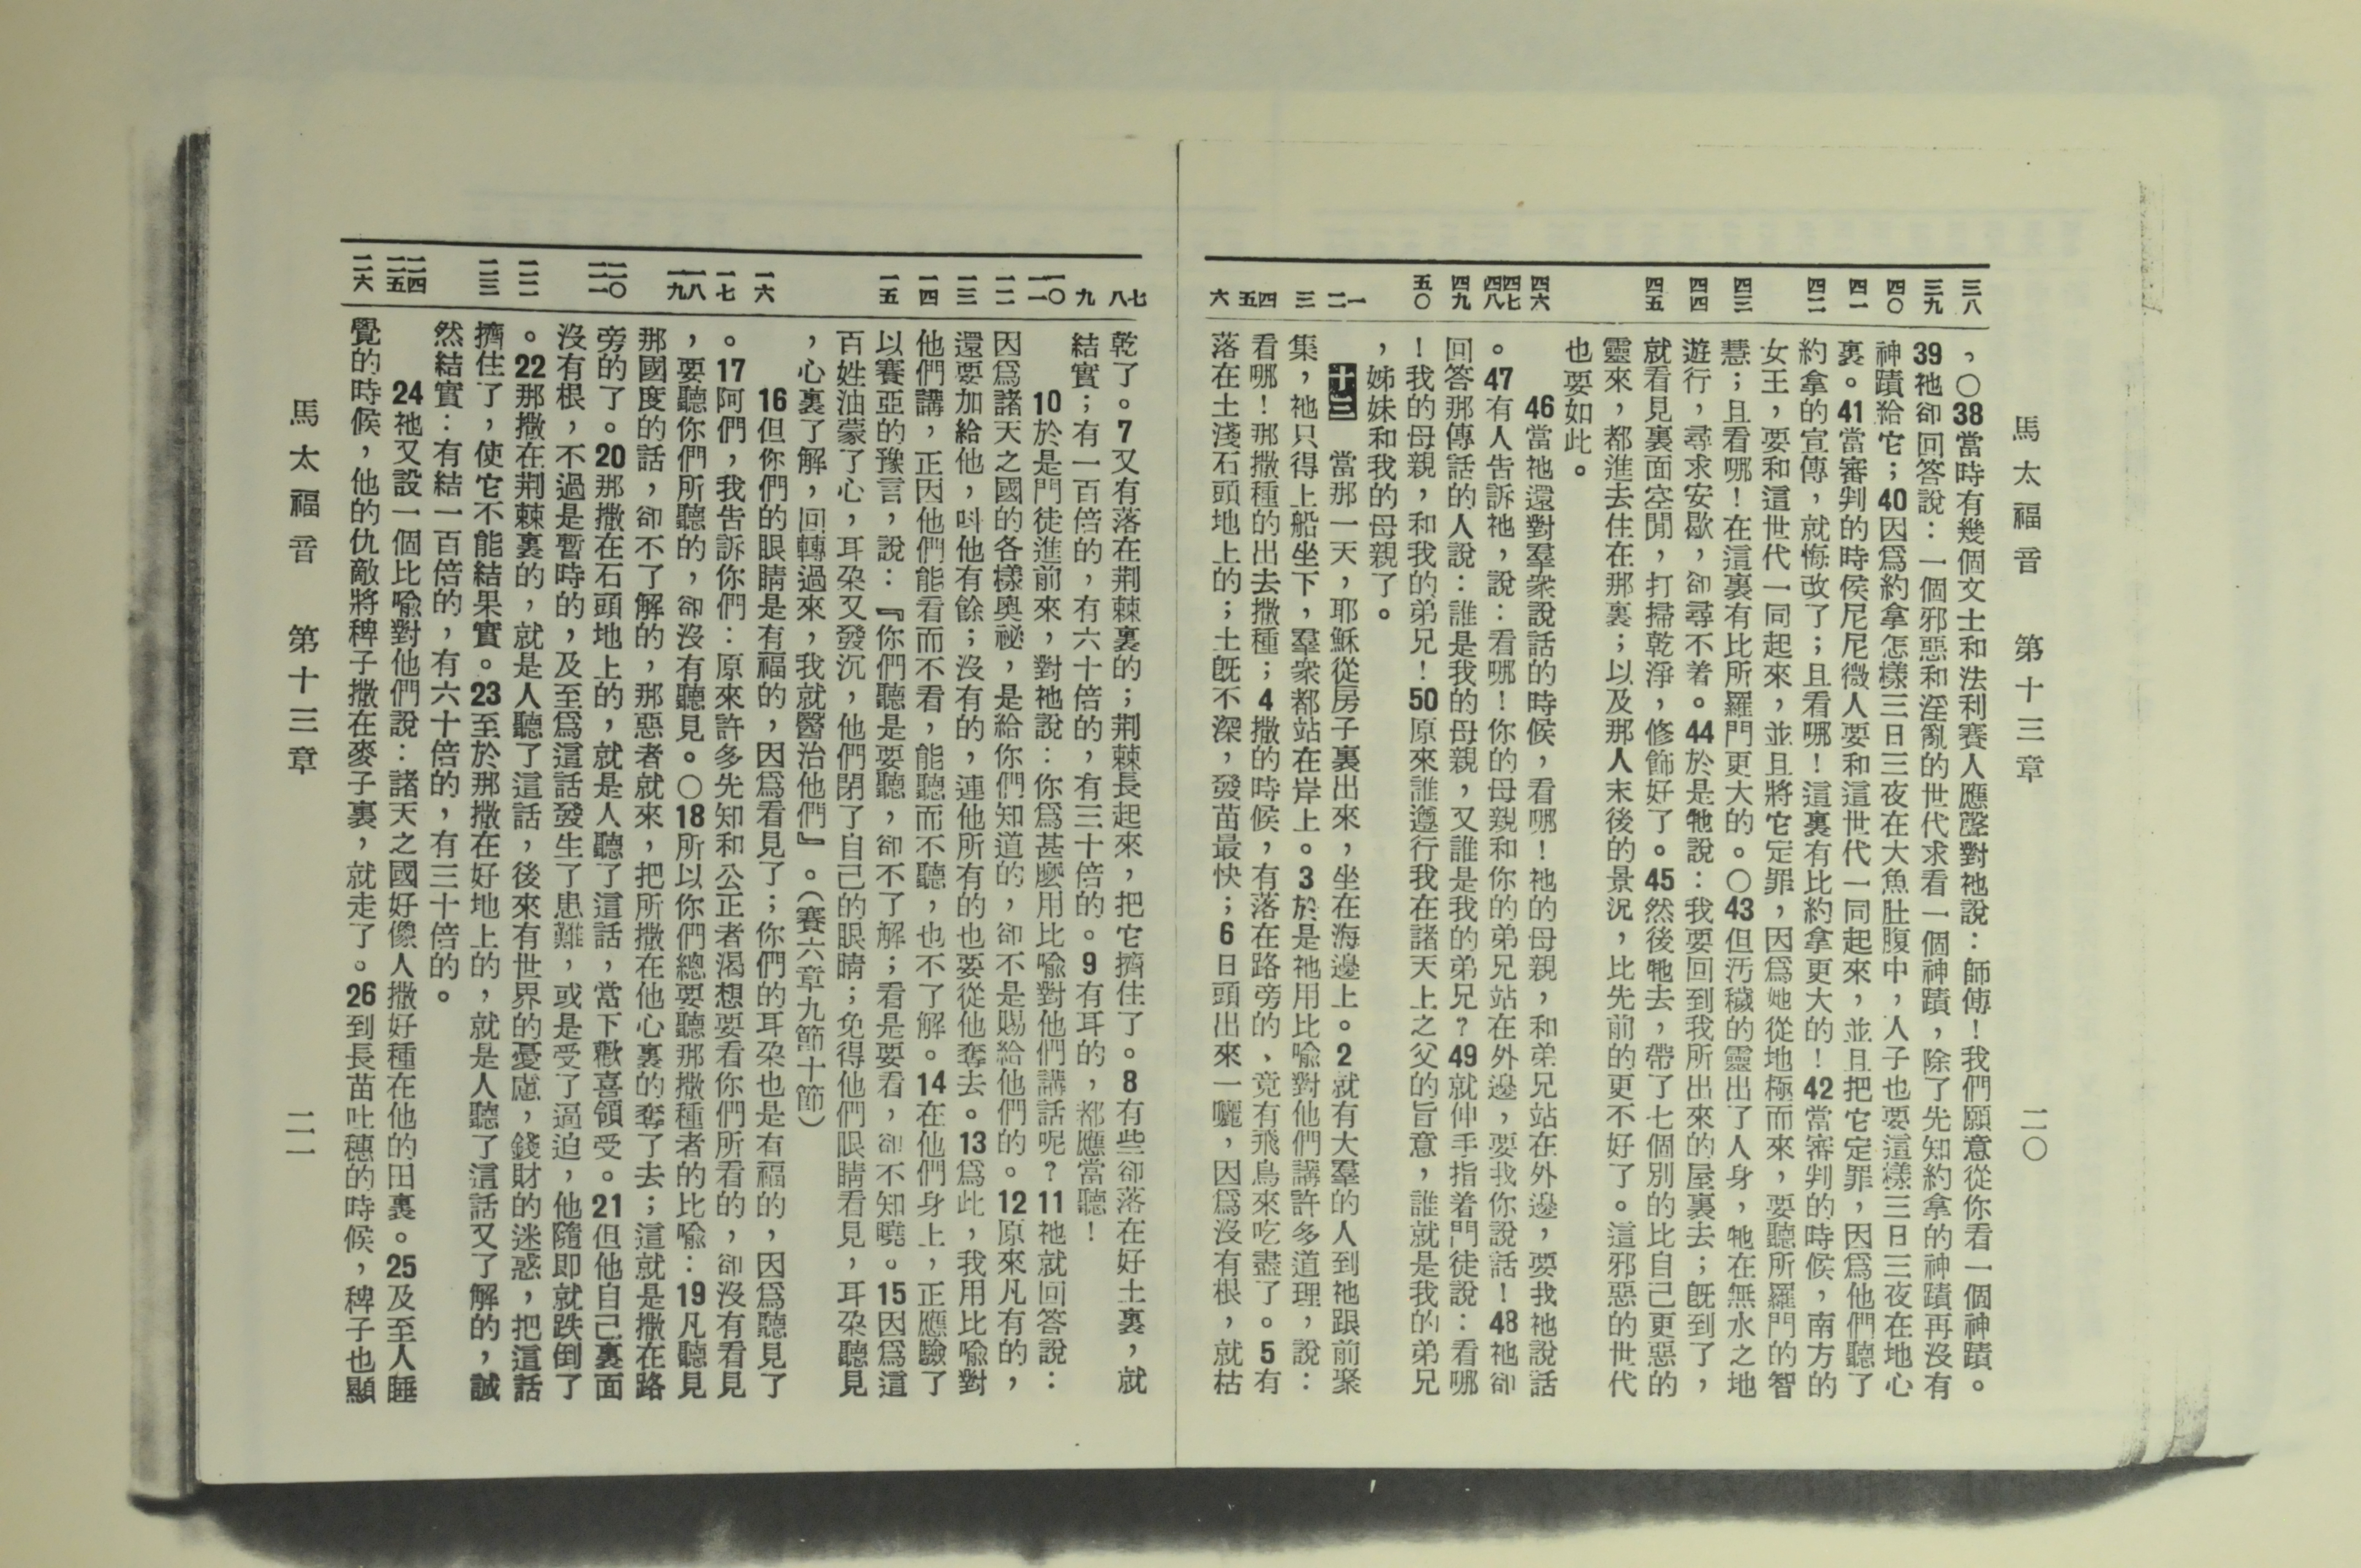 馬太福音　第十三章　二〇
三八
三九
四〇
四一
四二
四三
四四
四五
四六
四七
四八
四九
五〇
一
二
三
四
五
六
，〇38當時有幾個文士和法利賽人應聲對祂說：師傅！我們願意從你看一個神蹟。
39祂卻回答說：一個邪惡和淫亂的世代求看一個神蹟，除了先知約拿的神蹟再沒有
神蹟給它；40因爲約拿怎樣三日三夜在大魚肚腹中，人子也要這樣三日三夜在地心
裏。41當審判的時侯尼尼微人要和這世代一同起來，並且把它定罪，因爲他們聽了
約拿的宣傳，就悔改了；且看哪！這裏有比約拿更大的！42當審判的時候，南方的
女王，要和這世代一同起來，並且將它定罪，因爲她從地極而來，要聽所羅門的智
慧；且看哪！在這裏有比所羅門更大的。〇43但汚穢的靈出了人身，牠在無水之地
遊行，尋求安歇，卻尋不着。44於是牠說：我要回到我所出來的屋裏去；旣到了，
就看見裏面空閒，打掃乾淨，修飾好了。45然後牠去，帶了七個別的比自己更惡的
靈來，都進去住在那裏；以及那人末後的景況，比先前的更不好了。這邪惡的世代
也要如此。
46當祂還對羣衆說話的時候，看哪！祂的母親，和弟兄站在外邊，要找祂說話
。47有人告訴祂，說：看哪！你的母親和你的弟兄站在外邊，要找你說話！48祂卻
回答那傳話的人說：誰是我的母親，又誰是我的弟兄？49就伸手指着門徒說：看哪
！我的母親，和我的弟兄！50原來誰遵行我在諸天上之父的旨意，誰就是我的弟兄
，姊妹和我的母親了。
十三　當那一天，耶穌從房子裏出來，坐在海邊上。2就有大羣的人到祂跟前聚
集，祂只得上船坐下，羣衆都站在岸上。3於是祂用比喩對他們講許多道理，說：
看哪！那撒種的出去撒種；4撒的時候，有落在路旁的、竟有飛鳥來吃盡了。5有
落在土淺石頭地上的；土旣不深，發苗最快；6日頭出來一曬，因爲沒有根，就枯
七
八
九
一〇
一一
一二
一三
一四
一五
一六
一七
一八
一九
二〇
二一
二二
二三
二四
二五
二六
乾了。7又有落在荆棘裏的；荆棘長起來，把它擠住了。8有些卻落在好土裏，就
結實；有一百倍的，有六十倍的，有三十倍的。9有耳的，都應當聽！
10於是門徒進前來，對祂說：你爲甚麽用比喩對他們講話呢？11祂就回答說：
因爲諸天之國的各樣奧祕，是給你們知道的，卻不是賜給他們的。12原來凡有的，
還要加給他，叫他有餘；沒有的，連他所有的也要從他奪去。13爲此，我用比喩對
他們講，正因他們能看而不看，能聽而不聽，也不了解。14在他們身上，正應驗了
以賽亞的豫言，說：『你們聽是要聽，卻不了解；看是要看，卻不知曉。15因爲這
百姓油蒙了心，耳朶又發沉，他們閉了自己的眼睛；免得他們眼睛看見，耳朶聽見
，心裏了解，回轉過來，我就醫治他們』。（賽六章九節十節）
16但你們的眼睛是有福的，因爲看見了；你們的耳朶也是有福的，因爲聽見了
。17阿們，我告訴你們：原來許多先知和公正者渴想要看你們所看的，卻沒有看見
，要聽你們所聽的，卻沒有聽見。〇18所以你們總要聽那撒種者的比喩：19凡聽見
那國度的話，卻不了解的，那惡者就來，把所撒在他心裏的奪了去；這就是撒在路
旁的了。20那撒在石頭地上的，就是人聽了這話，當下歡喜領受。21但他自己裏面
沒有根，不過是暫時的，及至爲這話發生了患難，或是受了逼迫，他隨即就跌倒了
。22那撒在荆棘裏的，就是人聽了這話，後來有世界的憂慮，錢財的迷惑，把這話
擠住了，使它不能結果實。23至於那撒在好地上的，就是人聽了這話又了解的，誠
然結實：有結一百倍的，有六十倍的，有三十倍的。
24祂又設一個比喩對他們說：諸天之國好像人撒好種在他的田裏。25及至人睡
覺的時候，他的仇敵將稗子撒在麥子裏，就走了。26到長苗吐穗的時候，稗子也顯
馬太福音　第十三章　二一